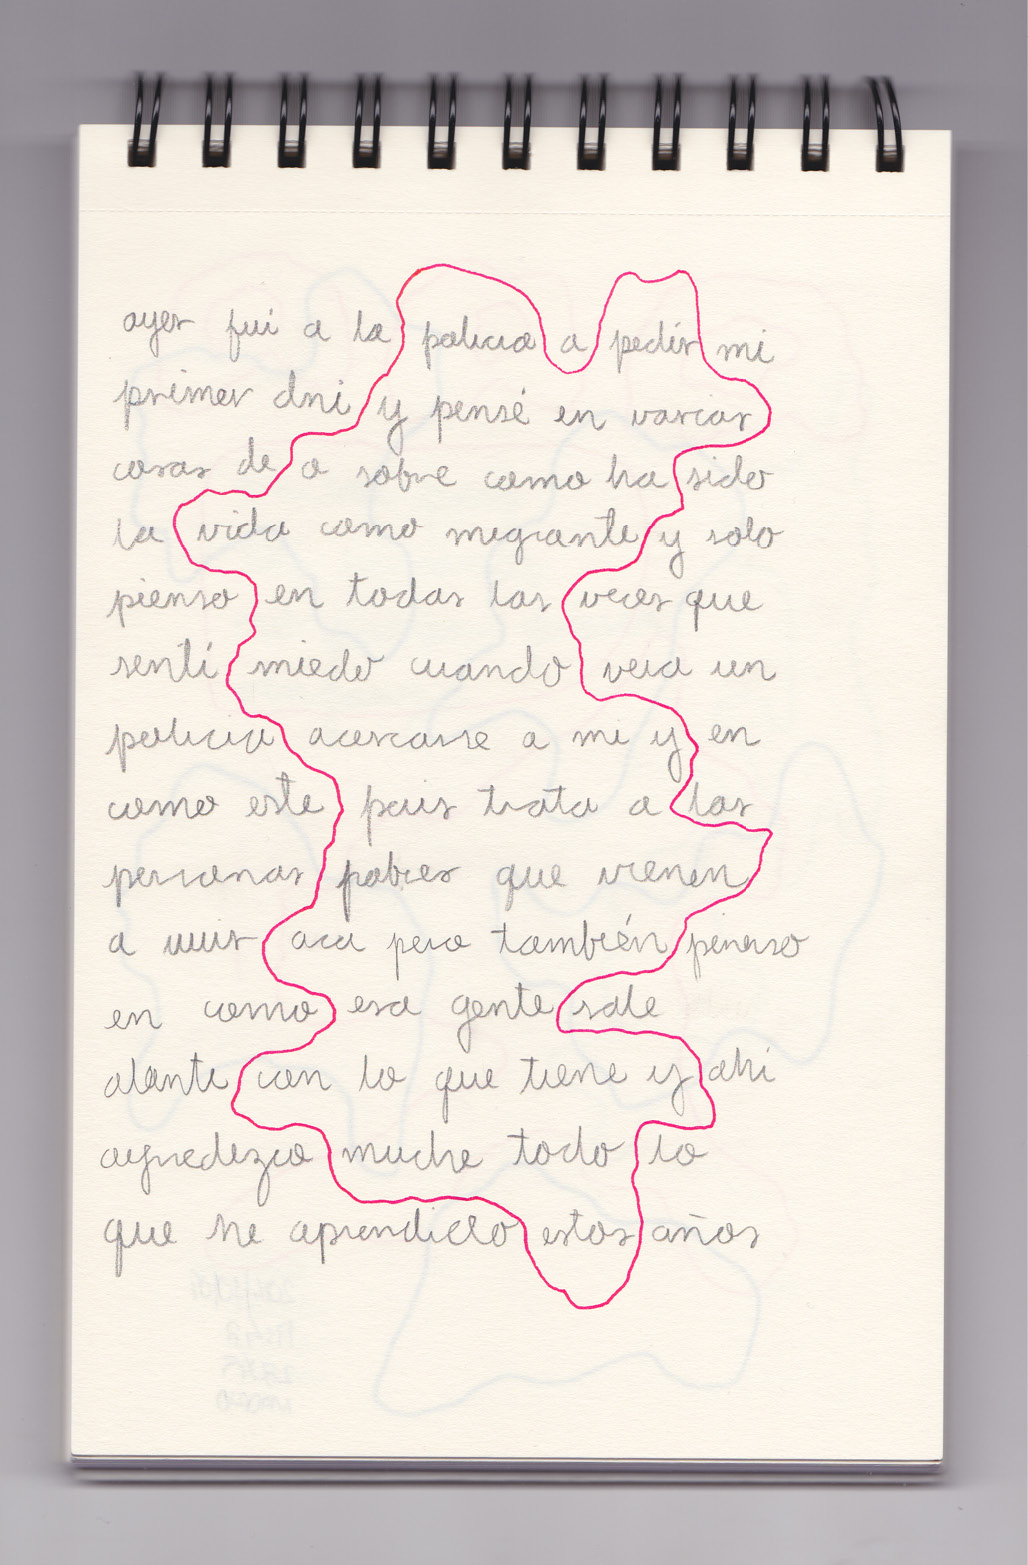 ayer fui a la policia a pedir mi
primer dni y pensé en varias
cosas de a sobre como ha sido
la vida como migrante y solo
pienso en todas las veces que
sentí miedo cuando veia un
policia acercarse a mi y en
como este pais trata a las
personas pobres que vienen
a vivir aca pero también pienso
en como esa gente sale
alante con lo que tiene y ahi
agredezco mucho todo lo
que he aprendido estos años